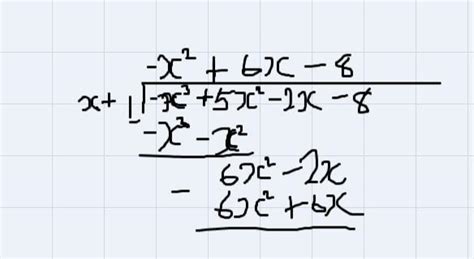 -x² + 6x - 8
x+1 -x³ + 5x² - 2x - 8
- -x³ - x²
6x² - 2x
- 6x² + 6x